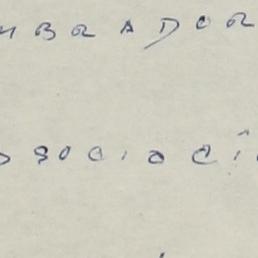 MBRADOR
SOCIACI